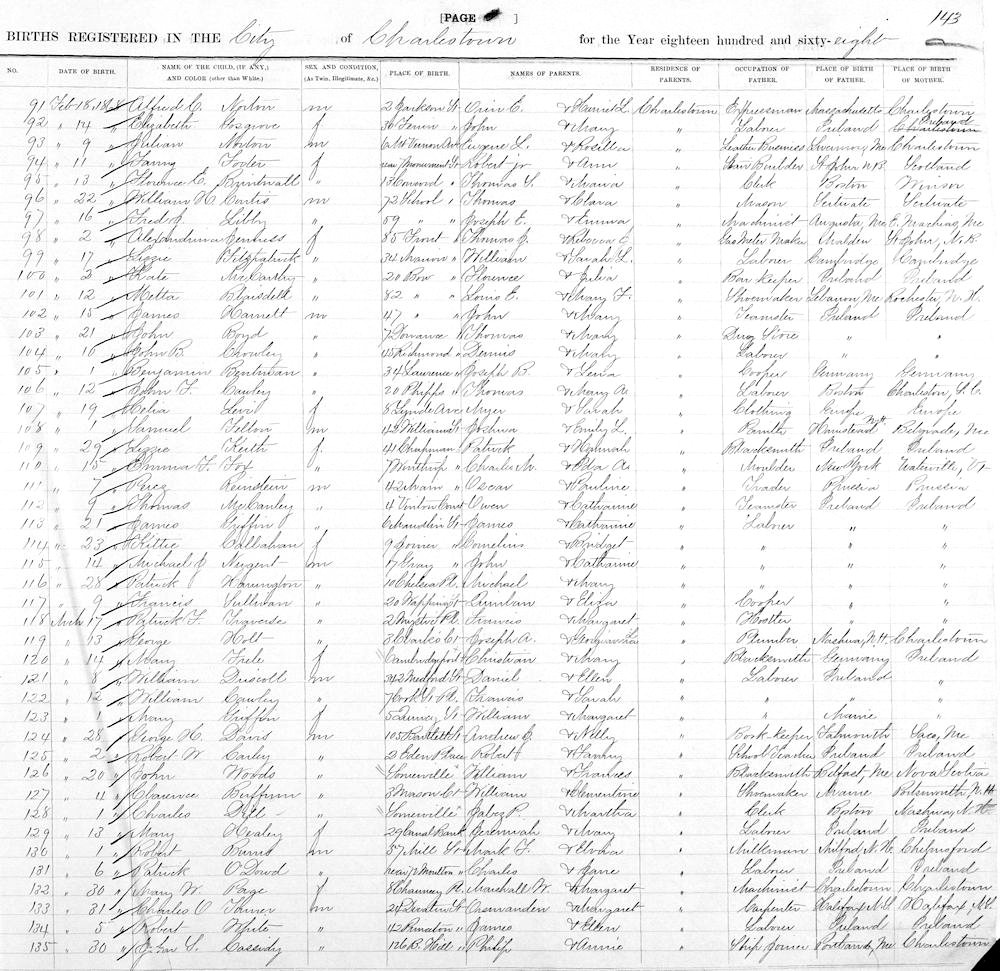 [PAGE ]
143
BIRTHS REGISTERED IN THE City of Charlestown for the Year eighteen hundred and sixty-eight
NO. DATE OF BIRTH. NAME OF THE CHILD, (IF ANY,) AND COLOR (other than White.) SEX AND CONDITION, (As Twin, Illegitimate, &c.) PLACE OF BIRTH. NAMES OF PARENTS. RESIDENCE OF PARENTS. OCCUPATION OF FATHER. PLACE OF BIRTH OF FATHER. PLACE OF BIRTH OF MOTHER.
91 Feb 18, 1868 Alfred C. Norton m 2 Jackson St Orin E. & Harriet L. Charlestown Expressman Massachusetts Charlestown
92 " 14 " Elizabeth Cosgrove f " John & Mary " Laborer Ireland Ireland
93 " 9 " Norton m Mt Vernon Ave Eugene L. & Rosella " Leather Business Charlestown
94 " 11 " Fanny f rear Monument St Robert jr & Ann " Stair Builder St John N.B. Scotland
95 " 13 " Florence E. " 13 Concord " Thomas & Maria " Clerk Boston
96 " 22 " William H. Curtis m 72 School " Thomas & Clara " Mason Scituate Scituate
97 " 16 " Fred Libby " 59 " " Joseph E. & Emma " Machinist Augusta, Me E. Machias, Me
98 " 2 " f 85 Front " Thomas & Rebecca " Gas Meter Maker Malden St John, N.B.
99 " 17 " Lizzie Fitzpatrick " William & Sarah L. " Laborer Cambridge Cambridge
100 " 3 " Kate McCarthy " 20 Bow " Florence & Julia " Bar Keeper Ireland Ireland
101 " 12 " Metta Blaisdell " 82 " " Louis E. & Mary F. " Shoemaker Lebanon, Me Rochester, N.H.
102 " 15 " James Harnett m 47 " " John & Mary " Teamster Ireland Ireland
103 " 21 " John Boyd " 7 Dorrance " Thomas & Mary " Drug Store " "
104 " 16 " John B. Crowley " 45 Richmond " Dennis & Mary " Laborer " "
105 " 1 " Benjamin " 34 Lawrence " Joseph B. & Lena " Cooper Germany Germany
106 " 12 " John F. Cawley " 20 Phipps " Thomas & Mary A. " Laborer Boston Charleston, S.C.
107 " 19 " Celia Levi f 8 Lynde Ave Myer & Sarah " Clothing Europe Europe
108 " 1 " Samuel m 42 William St Joshua & Emily L. " Hampstead Belgrade, Me
109 " 29 " Lizzie Keith f 41 Chapman " Patrick & Hannah " Blacksmith Ireland Ireland
110 " 15 " Emma F. Fox " 7 Winthrop " Charles M. & Ida A. " Moulder New York Waterville, Vt
111 " 7 " Reinstein m 42 Main " Oscar & Pauline " Trader Prussia Prussia
112 " 9 " Thomas McCauley " 4 Vinton Court Owen & Catharine " Teamster Ireland Ireland
113 " 21 " James Griffin " James & Catharine " Laborer " "
114 " 23 " Kittie Callahan f 9 Joiner " Cornelius & Bridget " " " "
115 " 14 " Michael J. Nugent m 17 Gray " John & Catharine " " " "
116 " 28 " Patrick Harrington " 10 Chelsea Pl. Michael & Mary " " " "
117 " 9 " Francis Sullivan " 20 Wapping St Quinlan & Eliza " Cooper " "
118 Mch 17 " Patrick F. Traverse " 2 Mystic Pl. Francis & Margaret " Hostler " "
119 " 13 " George Holt " 3 Clarks Ct Joseph A. & Georgianna " Plumber Nashua, N.H. Charlestown
120 " 14 " Mary Frele f "Cambridgeport" Christian & Mary " Blacksmith Germany Ireland
121 " 8 " William Driscoll m 342 Medford St Daniel & Ellen " Laborer Ireland "
122 " 12 " William Cawley " 7 Cook St Pl. Francis & Sarah " " " "
123 " 1 " Mary Griffin f 5 Quincy St William & Margaret " " Maine "
124 " 28 " George H. Davis m 105 Bartlett St Andrew J. & Nelly " Book Keeper Falmouth Saco, Me
125 " 2 " Robert W. Carley " 2 Eden Place Robert & Fanny " School Teacher Ireland Ireland
126 " 20 " John Woods " "Somerville" William & Frances " Blacksmith Belfast, Me Nova Scotia
127 " 4 " Clarence Buffum " 3 Mason Ct William & Clementine " Shoemaker Maine Portsmouth, N.H.
128 " 1 " Charles Dill " "Somerville" P. & Martha " Clerk Boston Nashua, N.H.
129 " 13 " Mary Healey f 29 Canal Bank Jeremiah & Mary " Laborer Ireland Ireland
130 " 1 " Robert Burns m 37 Mill St Mark F. & Elvira " Milkman Milford N.H. Chelmsford
131 " 6 " Patrick O'Dowd " rear 12 Moulton " Charles & Jane " Laborer Ireland Ireland
132 " 30 " Mary W. Page f 8 Chauncey Pl. Marshall W. & Margaret " Machinist Charlestown Charlestown
133 " 31 " Charles O. Turner m 24 Decatur St & Margaret " Carpenter Halifax, N.S. Halifax, N.S.
134 " 5 " Robert White " James & Ellen " Laborer Ireland Ireland
135 " 30 " Cassidy " 126 B. Hill " Philip & Annie " Ship Joiner Portland, Me Charlestown